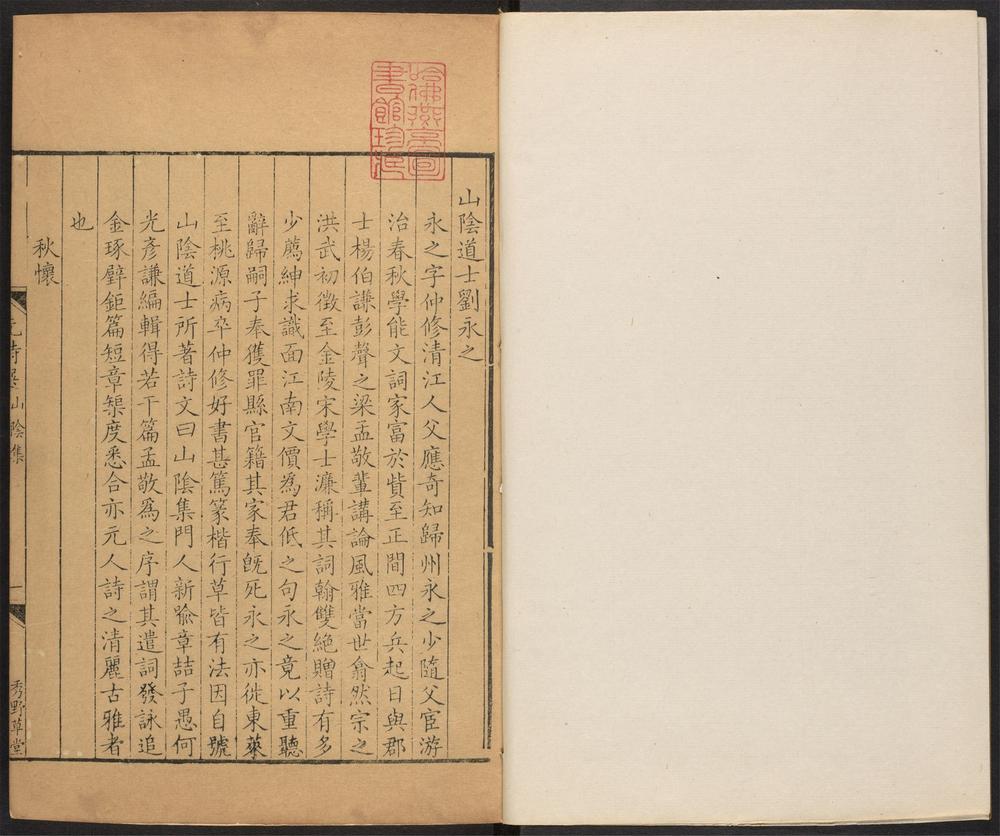 山陰道士劉永之
永之字仲修清江人父應奇知歸州永之少隨父宦游
治春秋學能文詞家富於貲至正間四方兵起日與郡
士楊伯謙彭聲之梁孟敬輩講論風雅當世翕然宗之
洪武初徵至金陵宋學士濂稱其詞翰雙絕贈詩有多
少薦紳求識面江南文價為君低之句永之竟以重聽
辭歸嗣子奉獲罪縣官籍其家奉旣死永之亦徙東萊
至桃源病卒仲修好書甚篤篆楷行草皆有法因自號
山陰道士所著詩文曰山陰集門人新喩章喆子愚何
光彥謙編輯得若干篇孟敬爲之序謂其遣詞發詠追
金琢璧鉅篇短章榘度悉合亦元人詩之清麗古雅者
也
秋懷
元詩選山陰集
一
秀野草堂
哈佛燕京圖
書館珍藏